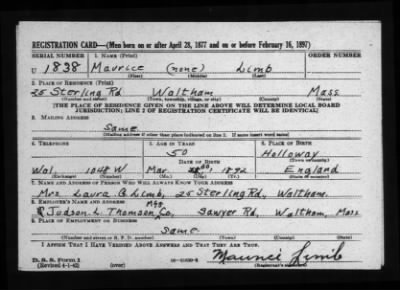 REGISTRATION CARD—(Men born on or after April 28, 1877 and on or before February 16, 1897)
SERIAL NUMBER 1. NAME (Print) ORDER NUMBER
U 1838 Maurice (none) Limb
(First) (Middle) (Last)
2. PLACE OF RESIDENCE (Print)
25 Sterling Rd Waltham Mass
(Number and street) (Town, township, village, or city) (County) (State)
[THE PLACE OF RESIDENCE GIVEN ON THE LINE ABOVE WILL DETERMINE LOCAL BOARD
JURISDICTION; LINE 2 OF REGISTRATION CERTIFICATE WILL BE IDENTICAL]
3. MAILING ADDRESS
Same
(Mailing address if other than place indicated on line 2. If same insert word same)
4. TELEPHONE 5. AGE IN YEARS 6. PLACE OF BIRTH
50 Holloway
DATE OF BIRTH (Town or county)
Wal. 1048 W Mar. 1892 England
(Exchange) (Number) (Mo.) (Day) (Yr.) (State or country)
7. NAME AND ADDRESS OF PERSON WHO WILL ALWAYS KNOW YOUR ADDRESS
Mrs. Laura B. Limb, 25 Sterling Rd., Waltham.
8. EMPLOYER'S NAME AND ADDRESS
Mfg.
Judson L. Thomson Co., Sawyer Rd., Waltham, Mass
9. PLACE OF EMPLOYMENT OR BUSINESS
Same
(Number and street or R. F. D. number) (Town) (County) (State)
I AFFIRM THAT I HAVE VERIFIED ABOVE ANSWERS AND THAT THEY ARE TRUE.
D. S. S. Form 1 Maurice Limb
(Revised 4-1-42) (over) (Registrant's signature)